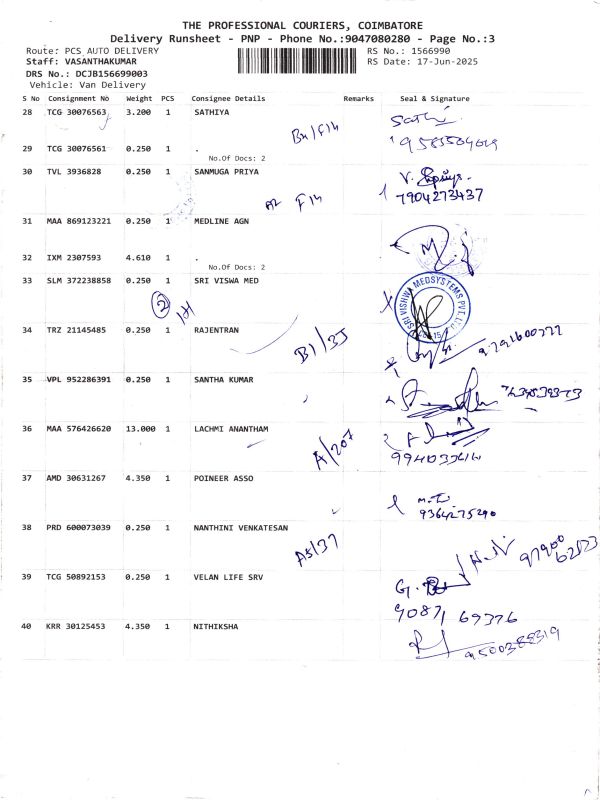 THE PROFESSIONAL COURIERS, COIMBATORE
Delivery Runsheet - PNP - Phone No.:9047080280 - Page No.:3
Route: PCS AUTO DELIVERY RS No.: 1566990
Staff: VASANTHAKUMAR RS Date: 17-Jun-2025
DRS No.: DCJB156699003
Vehicle: Van Delivery
S No Consignment No Weight PCS Consignee Details Remarks Seal & Signature
28 TCG 30076563 3.200 1 SATHIYA
29 TCG 30076561 0.250 1 .
No.Of Docs: 2
30 TVL 3936828 0.250 1 SANMUGA PRIYA
7904273437
31 MAA 869123221 0.250 1 MEDLINE AGN
32 IXM 2307593 4.610 1 .
No.Of Docs: 2
33 SLM 372238858 0.250 1 SRI VISWA MED
2
SRI VISHWA MEDSYSTEMS PVT. LTD.
34 TRZ 21145485 0.250 1 RAJENTRAN
B1/35
35 VPL 952286391 0.250 1 SANTHA KUMAR
36 MAA 576426620 13.000 1 LACHMI ANANTHAM
A/207
37 AMD 30631267 4.350 1 POINEER ASSO
9364275290
38 PRD 600073039 0.250 1 NANTHINI VENKATESAN
A5/37
39 TCG 50892153 0.250 1 VELAN LIFE SRV
90871 69376
40 KRR 30125453 4.350 1 NITHIKSHA
9500388319